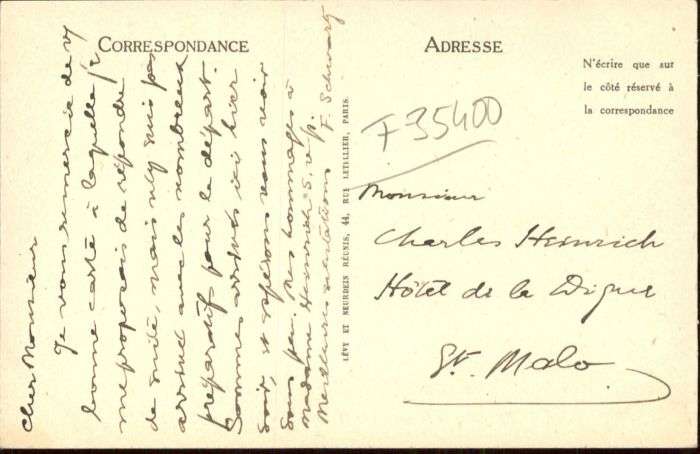 CORRESPONDANCE
Cher Monsieur
Je vous remercie de
bonne carte à laquelle je
me proposais de répondre
de suite, mais n'y suis pas
arrivé avec les nombreux
préparatifs pour le départ.
Sommes arrivés ici hier
soir, et espérons vous voir
sous peu, mes hommages à
Madame Heinrich s. v. p.
Meilleures salutations
F. Schwartz
LÉVY ET NEURDEIN RÉUNIS, 44, RUE LETELLIER, PARIS.
ADRESSE
N'écrire que sur
le côté réservé à
la correspondance
F 35400
Monsieur
Charles Heinrich
Hôtel de la Digue
St. Malo